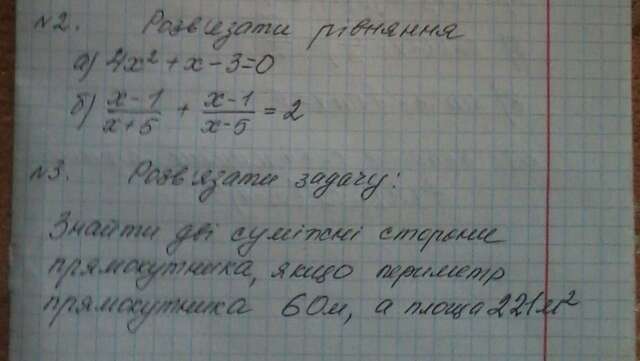 №2. Розвʼязати рівняння
а) 4x² + x - 3 = 0
б) (x - 1)/(x + 5) + (x - 1)/(x - 5) = 2
№3. Розвʼязати задачу:
Знайти дві суміжні сторони
прямокутника, якщо периметр
прямокутника 60м, а площа 221м²